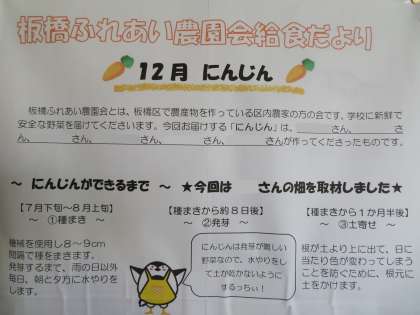 板橋ふれあい農園会給食だより
12月 にんじん
板橋ふれあい農園会とは、板橋区で農産物を作っている区内農家の方の会です。学校に新鮮で
安全な野菜を届けてくださいます。今回お届けする「にんじん」は、 さん、 さ
ん、 さん、 さん、 さん、 さんが作ってくださったものです。
～ にんじんができるまで ～ ★今回は さんの畑を取材しました★
【7月下旬～8月上旬】
～ ①種まき ～
機械を使用し8～9cm
間隔で種をまきます。
発芽するまで、雨の日以外
毎日、朝と夕方に水やりを
します。
【種まきから約8日後】
～ ②発芽 ～
にんじんは発芽が難しい
野菜なので、水やりをし
て土が乾かないように
するっちぃ！
【種まきから1か月半後】
～ ③土寄せ ～
根が土より上に出て、日に
当たり色が変わってしまう
ことを防ぐために、根元に
土をかけます。